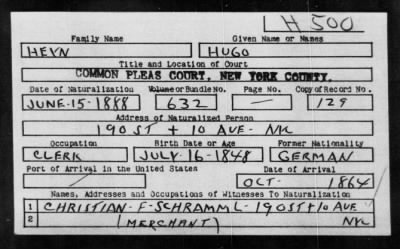 H 500
Family Name Given Name or Names
HEYN HUGO
Title and Location of Court
COMMON PLEAS COURT, NEW YORK COUNTY.
Date of Naturalization Volume or Bundle No. Page No. Copy of Record No.
JUNE-15-1888 632 — 129
Address of Naturalized Person
190 ST + 10 AVE - NK
Occupation Birth Date or Age Former Nationality
CLERK JULY-16-1848 GERMAN
Port of Arrival in the United States Date of Arrival
/ OCT- 1864
Names, Addresses and Occupations of Witnesses To Naturalization
1 CHRISTIAN-F-SCHRAMM L-190 ST + 10 AVE
2 (MERCHANT) NK